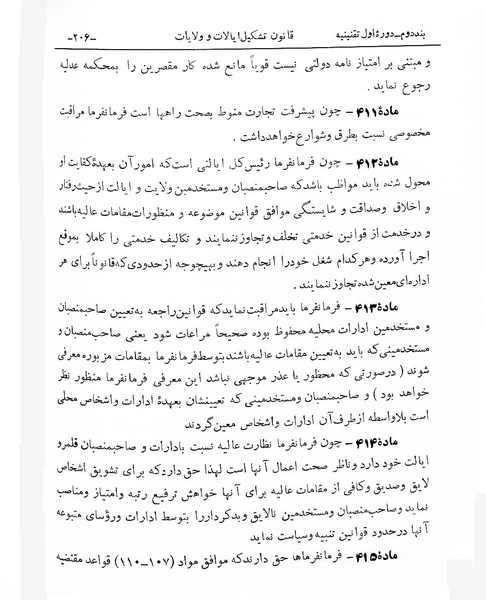 بند دوم ـ دورهٔ اول تقنینیه قانون تشکیل ایالات و ولایات -۲۰۶-
و مبتنی بر امتیاز نامه دولتی نیست قویاً مانع شده کار مقصرین را بمحکمه عدلیه
رجوع نماید .
مادهٔ ۴۱۱ - چون پیشرفت تجارت منوط بصحت راهها است فرمانفرما مراقبت
مخصوصی نسبت بطرق و شوارع خواهد داشت .
مادهٔ ۴۱۲ - چون فرمانفرما رئیس کل ایالتی است که امور آن بعهدهٔ کفایت او
محول شده باید مواظب باشد که صاحبمنصبان ومستخدمین ولایت و ایالت از حیث رفتار
و اخلاق وصداقت و شایستگی موافق قوانین موضوعه و منظورات مقامات عالیه باشند
و درخدمت از قوانین خدمتی تخلف وتجاوز ننمایند و تکالیف خدمتی را کاملا بموقع
اجرا آورده وهر کدام شغل خودرا انجام دهند و بهیچوجه از حدودی که قانوناً برای هر
اداره‌ای معین شده تجاوز ننمایند .
مادهٔ ۴۱۳ - فرمانفرما باید مراقبت نماید که قوانین راجعه به تعیین صاحبمنصبان
و مستخدمین ادارات محلیه محفوظ بوده صحیحاً مراعات شود یعنی صاحب‌منصبان و
مستخدمینی که باید به تعیین مقامات عالیه باشند بتوسط فرمانفرما بمقامات مزبوره معرفی
شوند ( درصورتی که محظور یا عذر موجهی نباشد این معرفی فرمانفرما منظور نظر
خواهد بود ) و صاحبمنصبان ومستخدمینی که تعیینشان بعهدهٔ ادارات و اشخاص محلی
است بلاواسطه از طرف آن ادارات واشخاص معین گردند
مادهٔ ۴۱۴ - چون فرمانفرما نظارت عالیه نسبت بادارات و صاحبمنصبان قلمرو
ایالت خود دارد وناظر صحت اعمال آنها است لهذا حق دارد که برای تشویق اشخاص
لایق وصدیق وکافی از مقامات عالیه برای آنها خواهش ترفیع رتبه وامتیاز ومناصب
نماید وصاحب‌منصبان ومستخدمین نالایق وبدکردار را بتوسط ادارات ورؤسای متبوعه
آنها درحدود قوانین تنبیه وسیاست نماید
مادهٔ ۴۱۵ - فرمانفرماها حق دارند که موافق مواد (۱۰۷-۱۱۰) قواعد مقتضیه